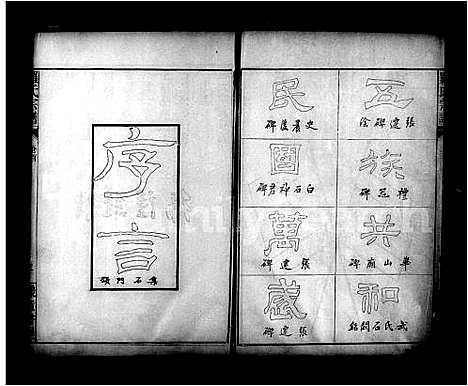 五
張遷碑陰
族
禮器碑
共
華山廟碑
和
武氏石闕銘
民
史晨後碑
國
白石神君碑
萬
張遷碑
歲
張遷碑
序言
集石門頌